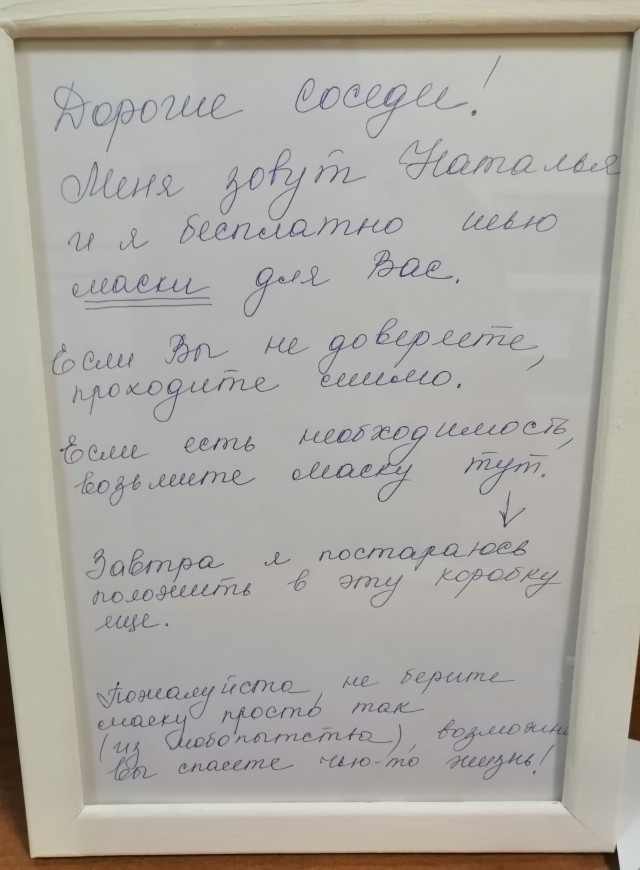 Дорогие соседи!
Меня зовут Наталья
и я бесплатно шью
маски для Вас.
Если Вы не доверяете,
проходите мимо.
Если есть необходимость,
возьмите маску тут.
↓
Завтра я постараюсь
положить в эту коробку
еще.
Пожалуйста, не берите
маску просто так
(из любопытства), возможно
Вы спасете чью-то жизнь!